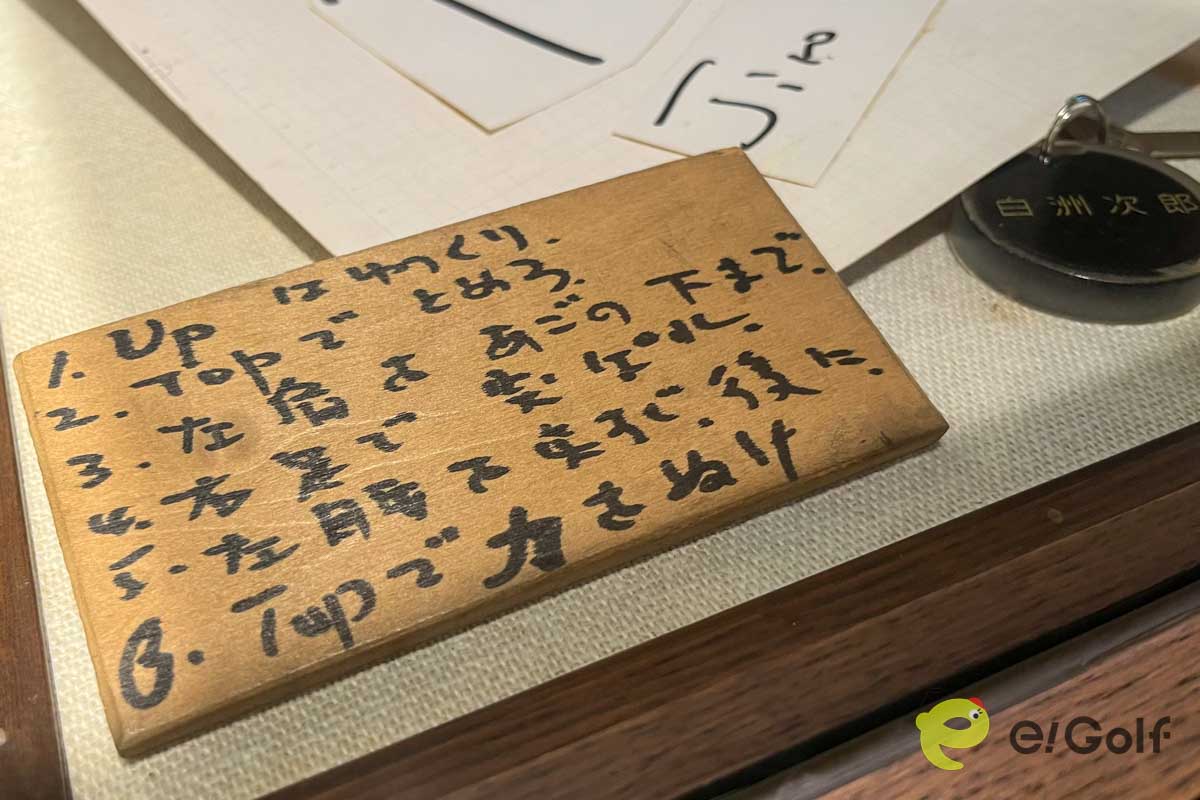 Jiro
白洲次郎
1. Up は ゆっくり.
2. Top で とめろ.
3. 左肩を あごの 下まで.
4. 右足で 突ぱれ.
5. 左腰を 真すぐ. 後に.
6. Top で 力をぬけ
e!Golf